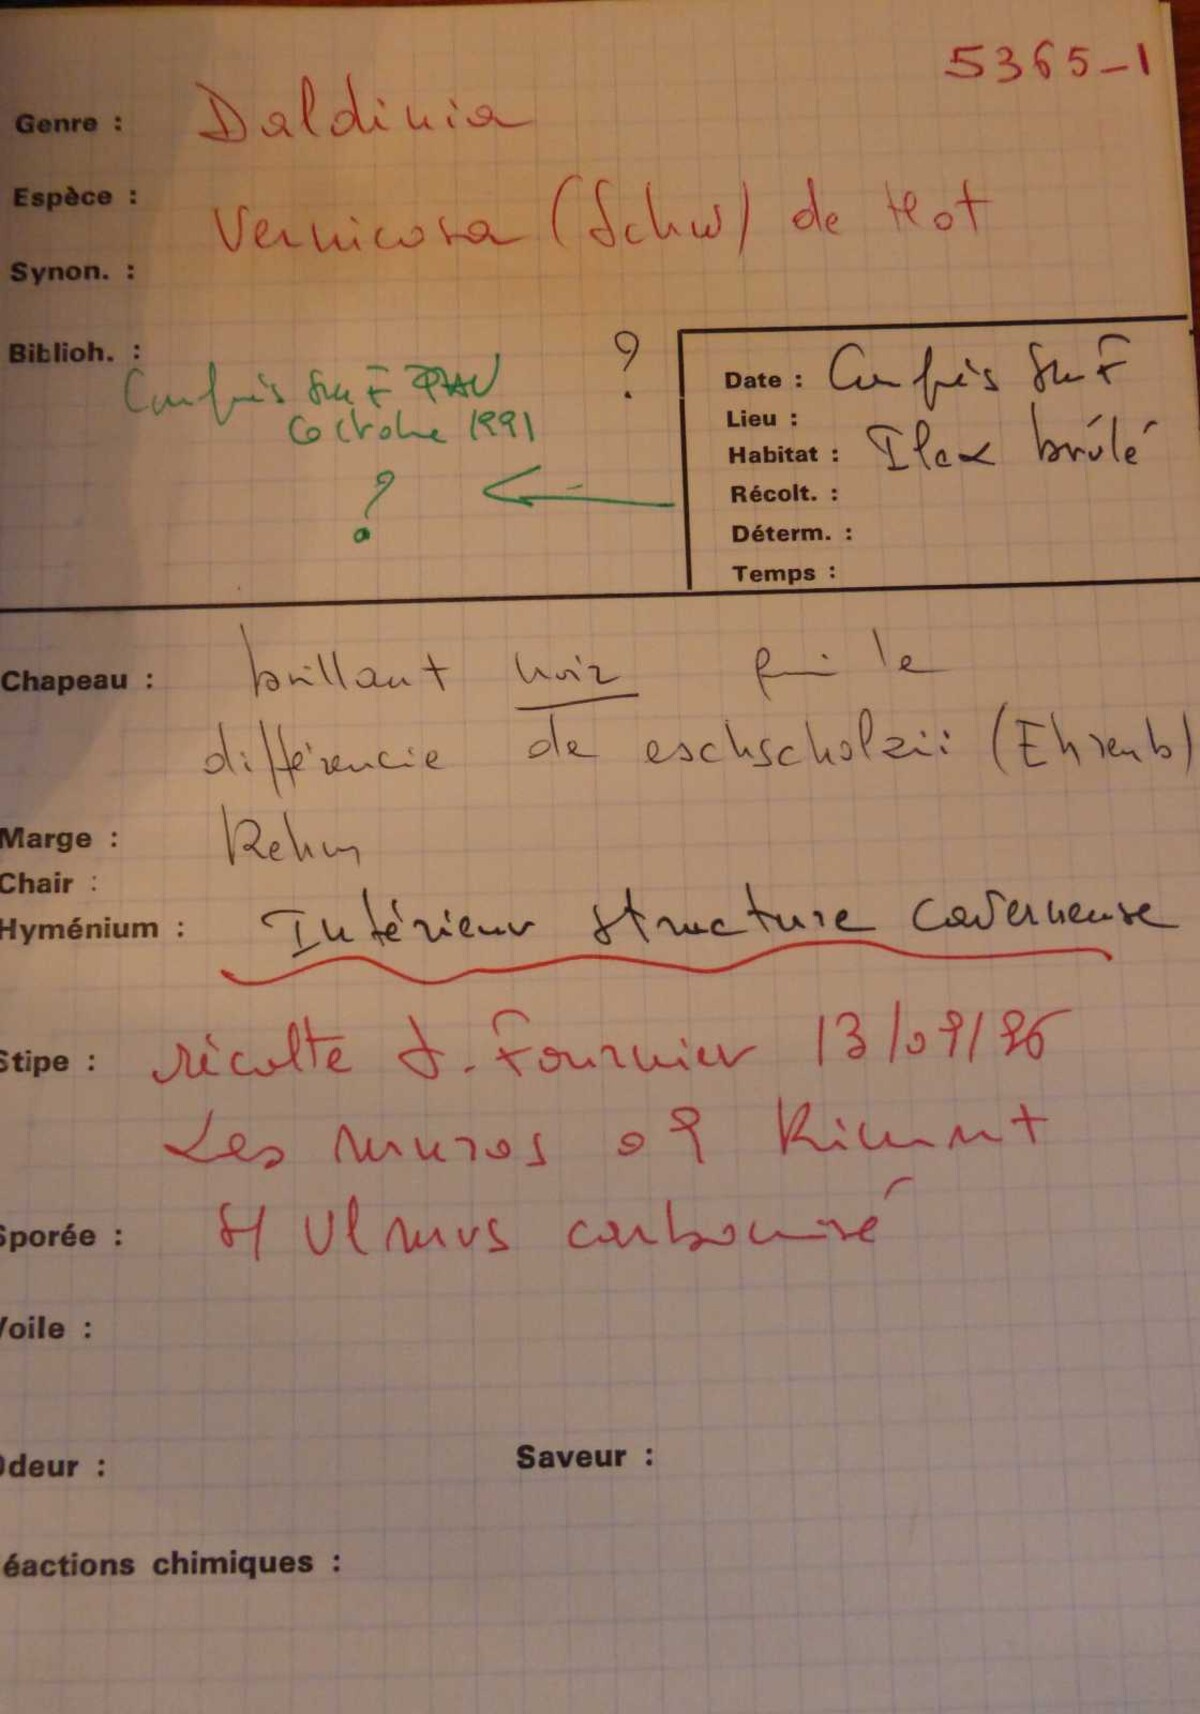 5365-1
Genre : Daldinia
Espèce :
Vernicosa (Schw) de Not
Synon. :
Biblioh. :
?
Congrès SMF PAU
Octobre 1991
?
Date : Congrès SMF
Lieu :
Habitat : Ilex brûlé
Récolt. :
Déterm. :
Temps :
Chapeau : brillant noir qui le
différencie de eschscholzii (Ehrenb)
Marge : Rehm
Chair :
Hyménium : Intérieur structure caverneuse
Stipe : récolte J. Fournier 13/09/96
Les muros 09 Rimont
Sporée : s/ Ulmus carbonisé
Voile :
Odeur :
Saveur :
éactions chimiques :